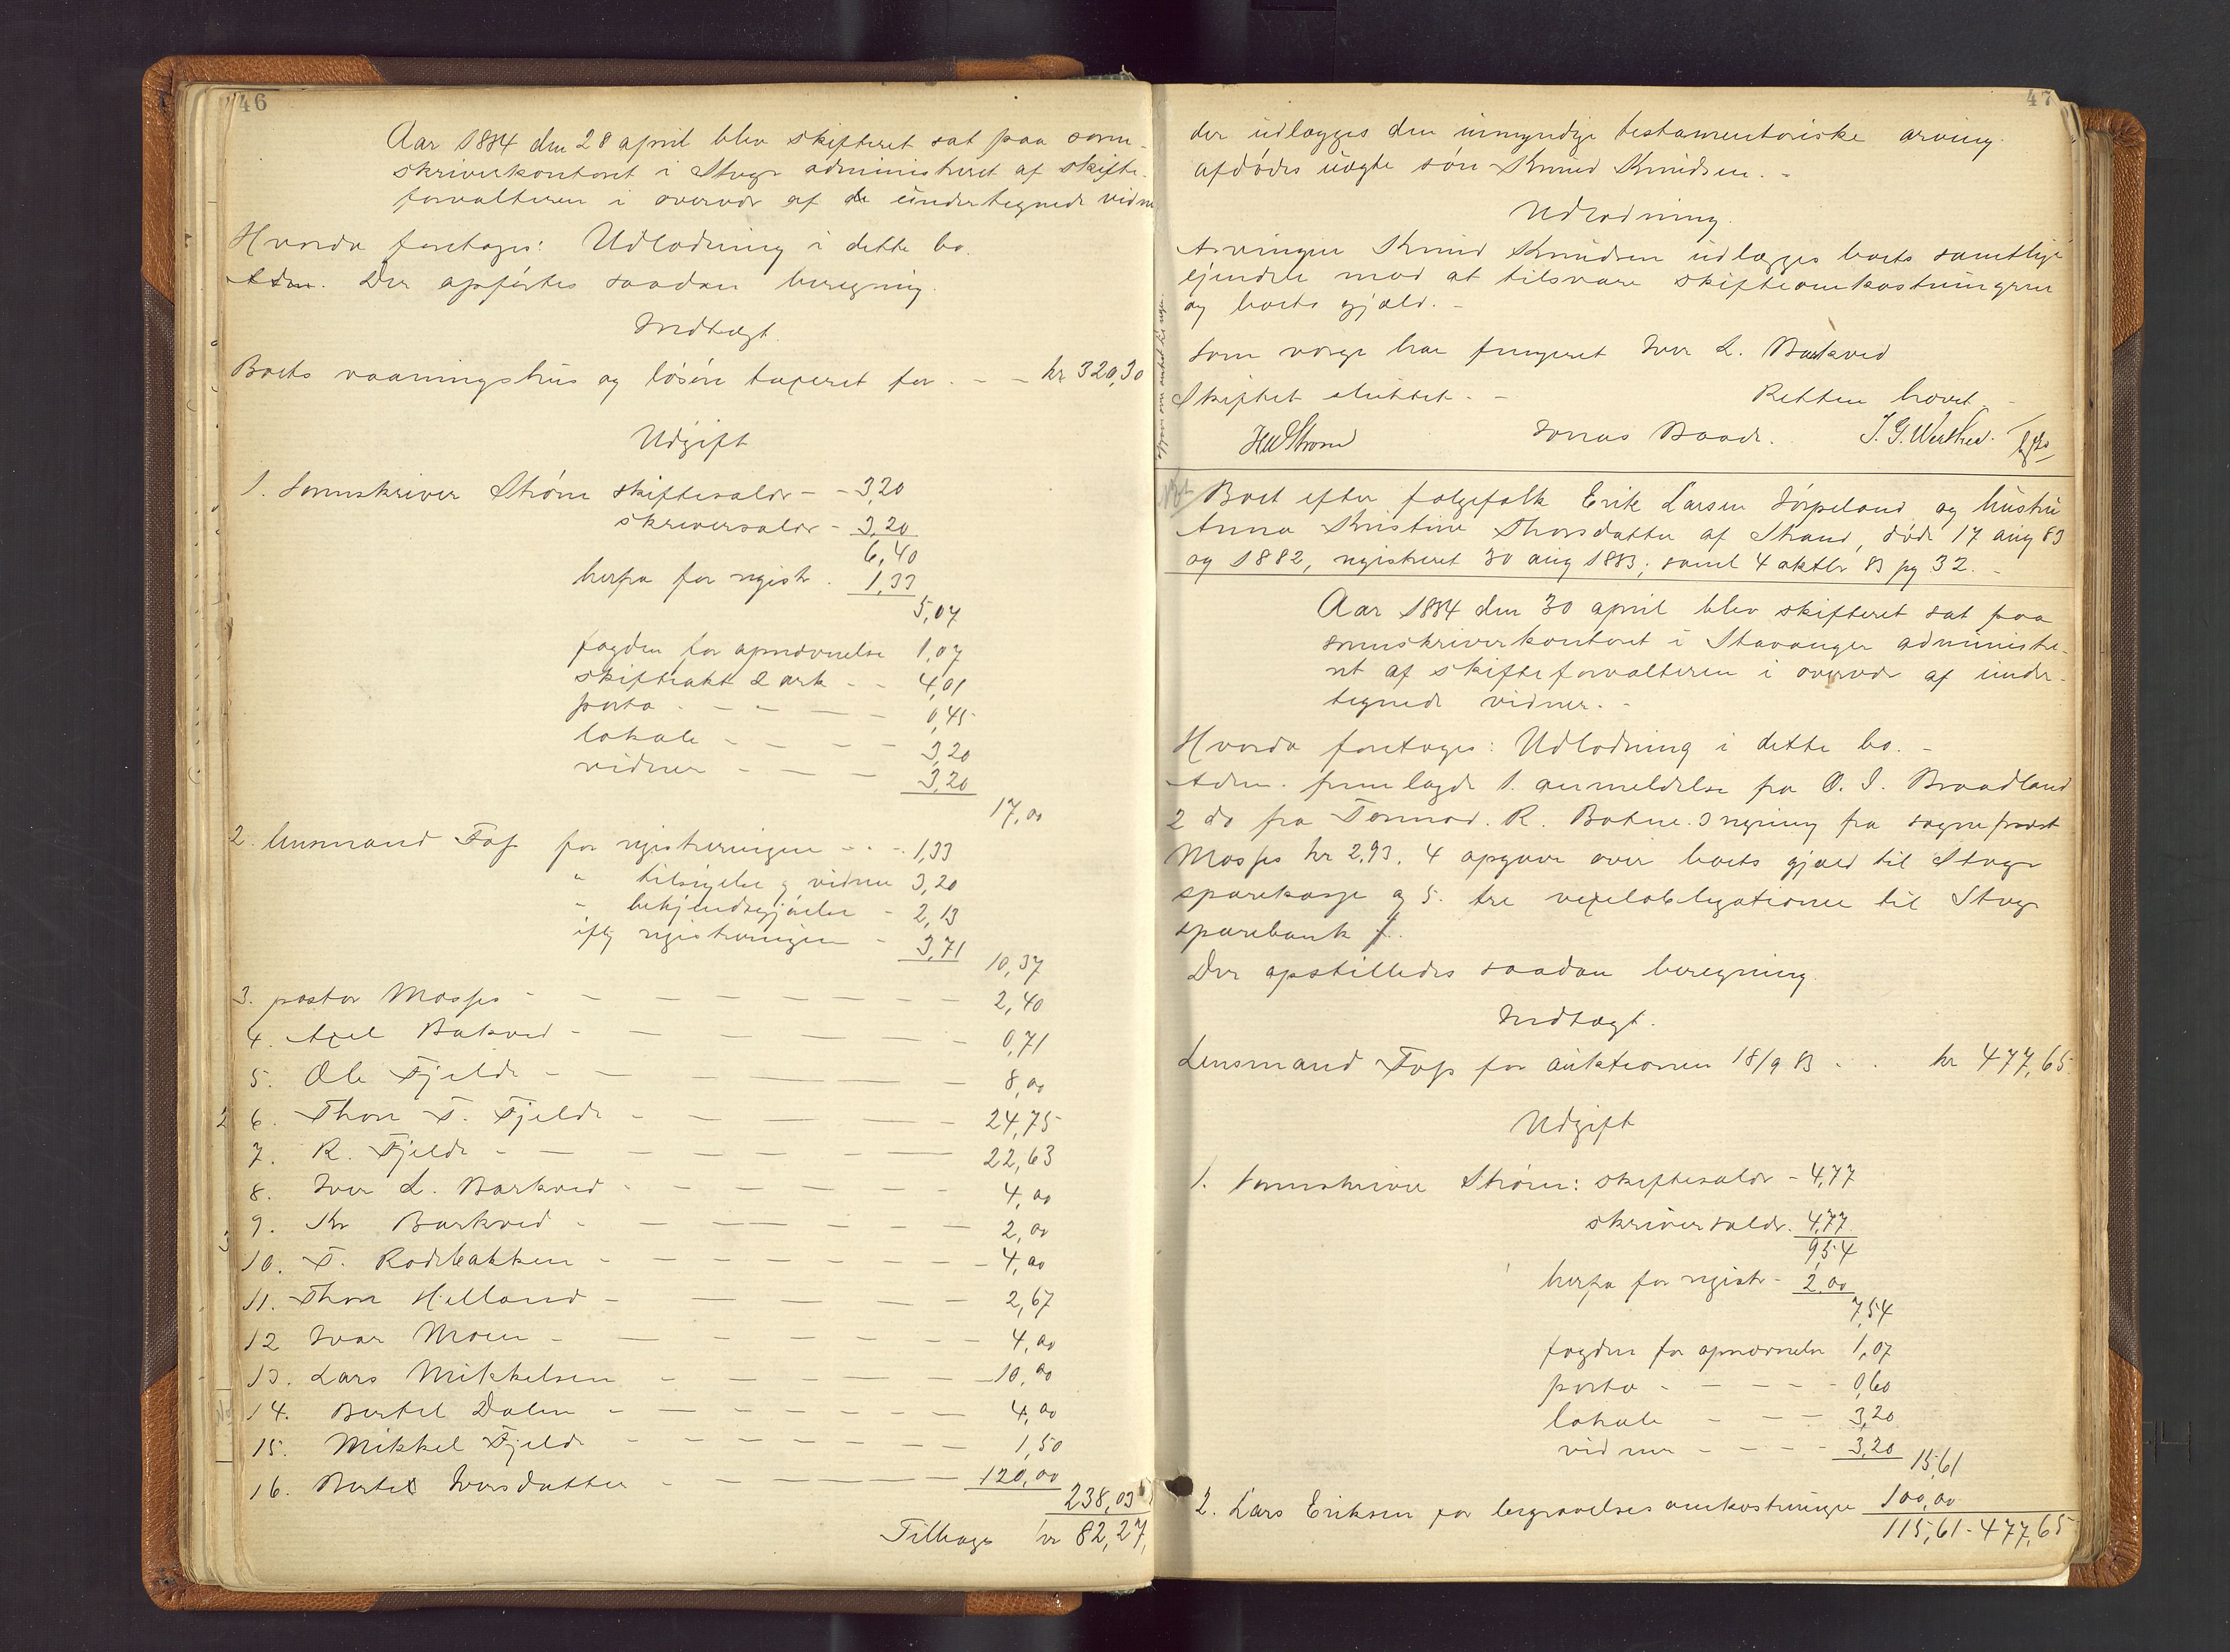 46
Aar 1884 den 28 april blev skifteret sat paa soren-
skriverkontoret i Stvgr administreret af skifte-
forvalteren i overvær af de undertegnede vidner
Hvorda foretoges: Udlodning i dette bo.
Adm. Der opførtes saadan beregning.
Indtægt.
Boets vaaningshus og løsøre taxeret for . - - kr 320,30
Udgift
1. Sorenskriver Strøm skiftesalær - - 3,20
skriversalær - 3,20
6,40
herfra for registr. 1,33
5,07
fogden for opnævnelse 1,07
skifteakt 2 ark - - 4,01
porto - - - - - 0,45
lokale - - - - 3,20
vidner - - - 3,20
17,00
2. lensmand Fos for registreringen - - - 1,33
" tilsigelse g vidner 3,20
" bekjendtgjørelse - 2,13
iflg registreringen - 3,71
10,37
3. pastor Mosses - - - - - - - 2,40
4. Axel Bakved - - - - - - 0,71
5. Ole Fjelde - - - - - - 8,00
6. Thore T. Fjelde - - - - - 24,75
7. R. Fjelde - - - - - - - 22,63
8. Iver L. Barkved - - - - - - 4,00
9. Kr Barkved - - - - - - - 2,00
10. T. Rodebakken - - - - - - - 4,00
11. Thore Helland - - - - - 2,67
12 Ivar Moen - - - - - - - 4,00
13. Lars Mikkelsen - - - - - - 10,00
14. Bertel Dalen - - - - - - - 4,00
15. Mikkel Fjelde - - - - - - 1,50
16. Bertel Iversdatter - - - - - 120,00
238,03
Tilbage kr 82,27,
47
der udlægges den umyndige testamentariske arving.
afdødes uægte søn Knud Knudsen. -
Udlodning.
Arvingen Knud Knudsen udlægges boets samtlige
ejendele mod at tilsvare skifteomkostningerne
og boets gjæld. -
Som værge har fungeret Iver L. Barkved
Skiftet sluttet. - Retten hævet. -
HWStrøm Jonas Baade. J. G. Wæthed.
Boet efter følgefolk Erik Larsen Jørpeland og hustru
Anna Kristine Thorsdatter af Strand, døde 17 aug 83
og 1882, registreret 30 aug 1883; saml 4 oktbr 83 pg 32. -
Aar 1884 den 30 april blev skifteret sat paa
sorenskriverkontoret i Stavanger administre-
ret af skifteforvalteren i overvær af under-
tegnede vidner. -
Hvorda foretoges: Udlodning i dette bo. -
Adm. fremlagde 1. anmeldelse fra O. I. Braadland
2 do fra Tormod. R. Botne. 3 regning fra sogneprest
Mosses kr 2,93. 4 opgave over boets gjæld til Stvgr
sparekasse og 5. tre vexelobligationer til Stvgr
sparebank.
Der opstilledes saadan beregning.
Indtægt.
Lensmand Fos for auktionen 18/9 83 - . kr 477,65
Udgift
1. Sorenskriver Strøm: skiftesalær - 4,77
skriversalær. 4,77
9,54
herfra for registr - 2,00
7,54
fogden for opnævnelse 1,07
porto - - - - - 0,60
lokale - - - 3,20
vidner - - - - 3,20
15,61
2. Lars Eriksen for begravelsesomkostninger 100,00
115,61 - 477,65